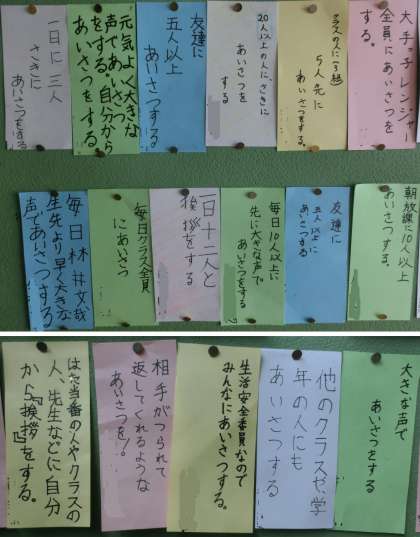 大手っ子レンジャー
全員にあいさつを
する。
クラスの人に
5人先に
あいさつをする
20人以上の人に、さきに
あいさつを
する
友達に
五人以上
あいさつする
元気よく大きな
声であいさつ
をする。自分から
あいさつをする。
一日に三人
さきに
あいさつをする
朝放課に10人以上
あいさつする。
友達に
五人以上に
あいさつする
毎日10人以上に
先に大きな声で
あいさつをする
一日十二人と
挨拶をする
毎日クラス全員
にあいさつ
毎日林井文哉
先生より早く大きな
声であいさつする
大きな声で
あいさつをする
他のクラスや、学
年の人にも
あいさつする
生活安全委員なので
みんなにあいさつする
相手がつられて
返してくれるような
あいさつを!。
はた当番の人やクラスの
人、先生などに自分
から『挨拶』をする。